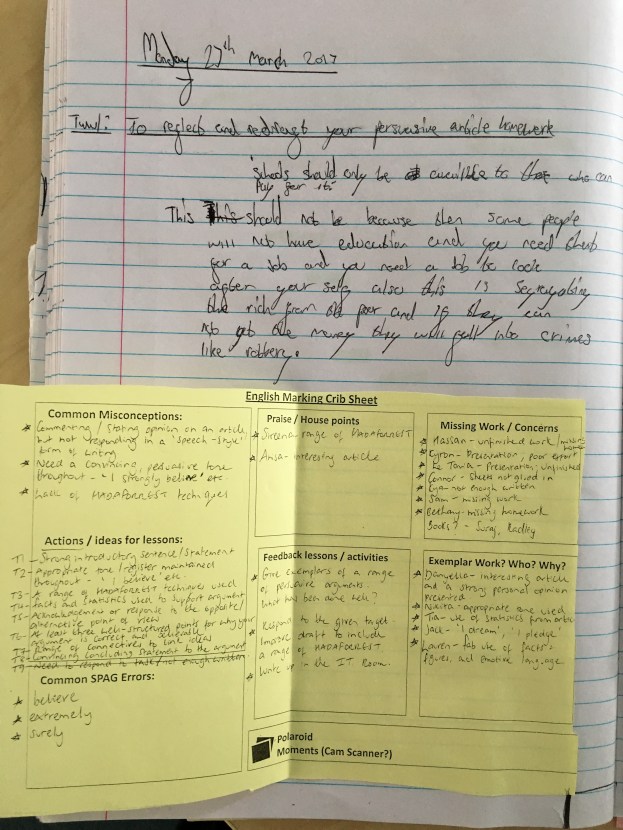 Monday 27th March 2017
To reflect and redraft your persuasive article homework
Schools should only be to who can
Pay for it
This should not be because then some people
will not have education and you need that
for a Job and you need a Job to look
after your self also this is segregating
the rich from the poor and if they can
not get the money they will fall into crimes
like robbery.
English Marking Crib Sheet
Common Misconceptions:
* Commenting / Stating opinion on an article,
but not responding in a 'speech-style'
form of writing
* Need a convincing, persuasive tone
throughout - 'I strongly believe' etc
* Lack of MADAFORREST techniques
Praise / House points
* range of MADAFORREST
* Ansa - interesting article
Missing Work / Concerns
* Hassan - unfinished work / missing
* Kyron - Presentation, poor effort
* Towa - Presentation, unfinished
* Connor - Sheets not glued in
* not enough written
* Sam - missing work
* Bethany - missing homework
Books? - Suraj, Radley
Actions / ideas for lessons:
T1 - Strong introductory sentence/statement
T2 - Appropriate tone/register maintained
throughout - 'I believe' etc.
T3 - A range of MADAFORREST techniques used
T4 - facts and statistics used to support argument
T5 - Acknowledgement or response to the opposite/
alternative point of view
T6 - At least three well-structured points for why your
argument is correct and
T7 - Range of connectives to link ideas
T8 - concluding statement to the argument
T9 - Need to respond to task/not enough written
Feedback lessons / activities
* Give exemplars of a range
of persuasive arguments.
What has been done well?
* Respond to the given target
Improve draft to include
a range of MADAFORREST
* Write up in the IT Room.
Exemplar Work? Who? Why?
* Danyella - interesting article
and a strong personal opinion
presented
* Nikita - appropriate tone used
* Tia - use of statistics from article
* Jack - 'I dream', 'I pledge'
* Lauren - fab use of facts,
figures, and emotive language.
Common SPAG Errors:
* believe
* extremely
* surely
Polaroid
Moments (Cam Scanner?)